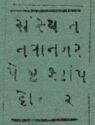 સંસ્થાન
નવાનગર
પોષ્ટ સ્ટાંપ
દો. ૨